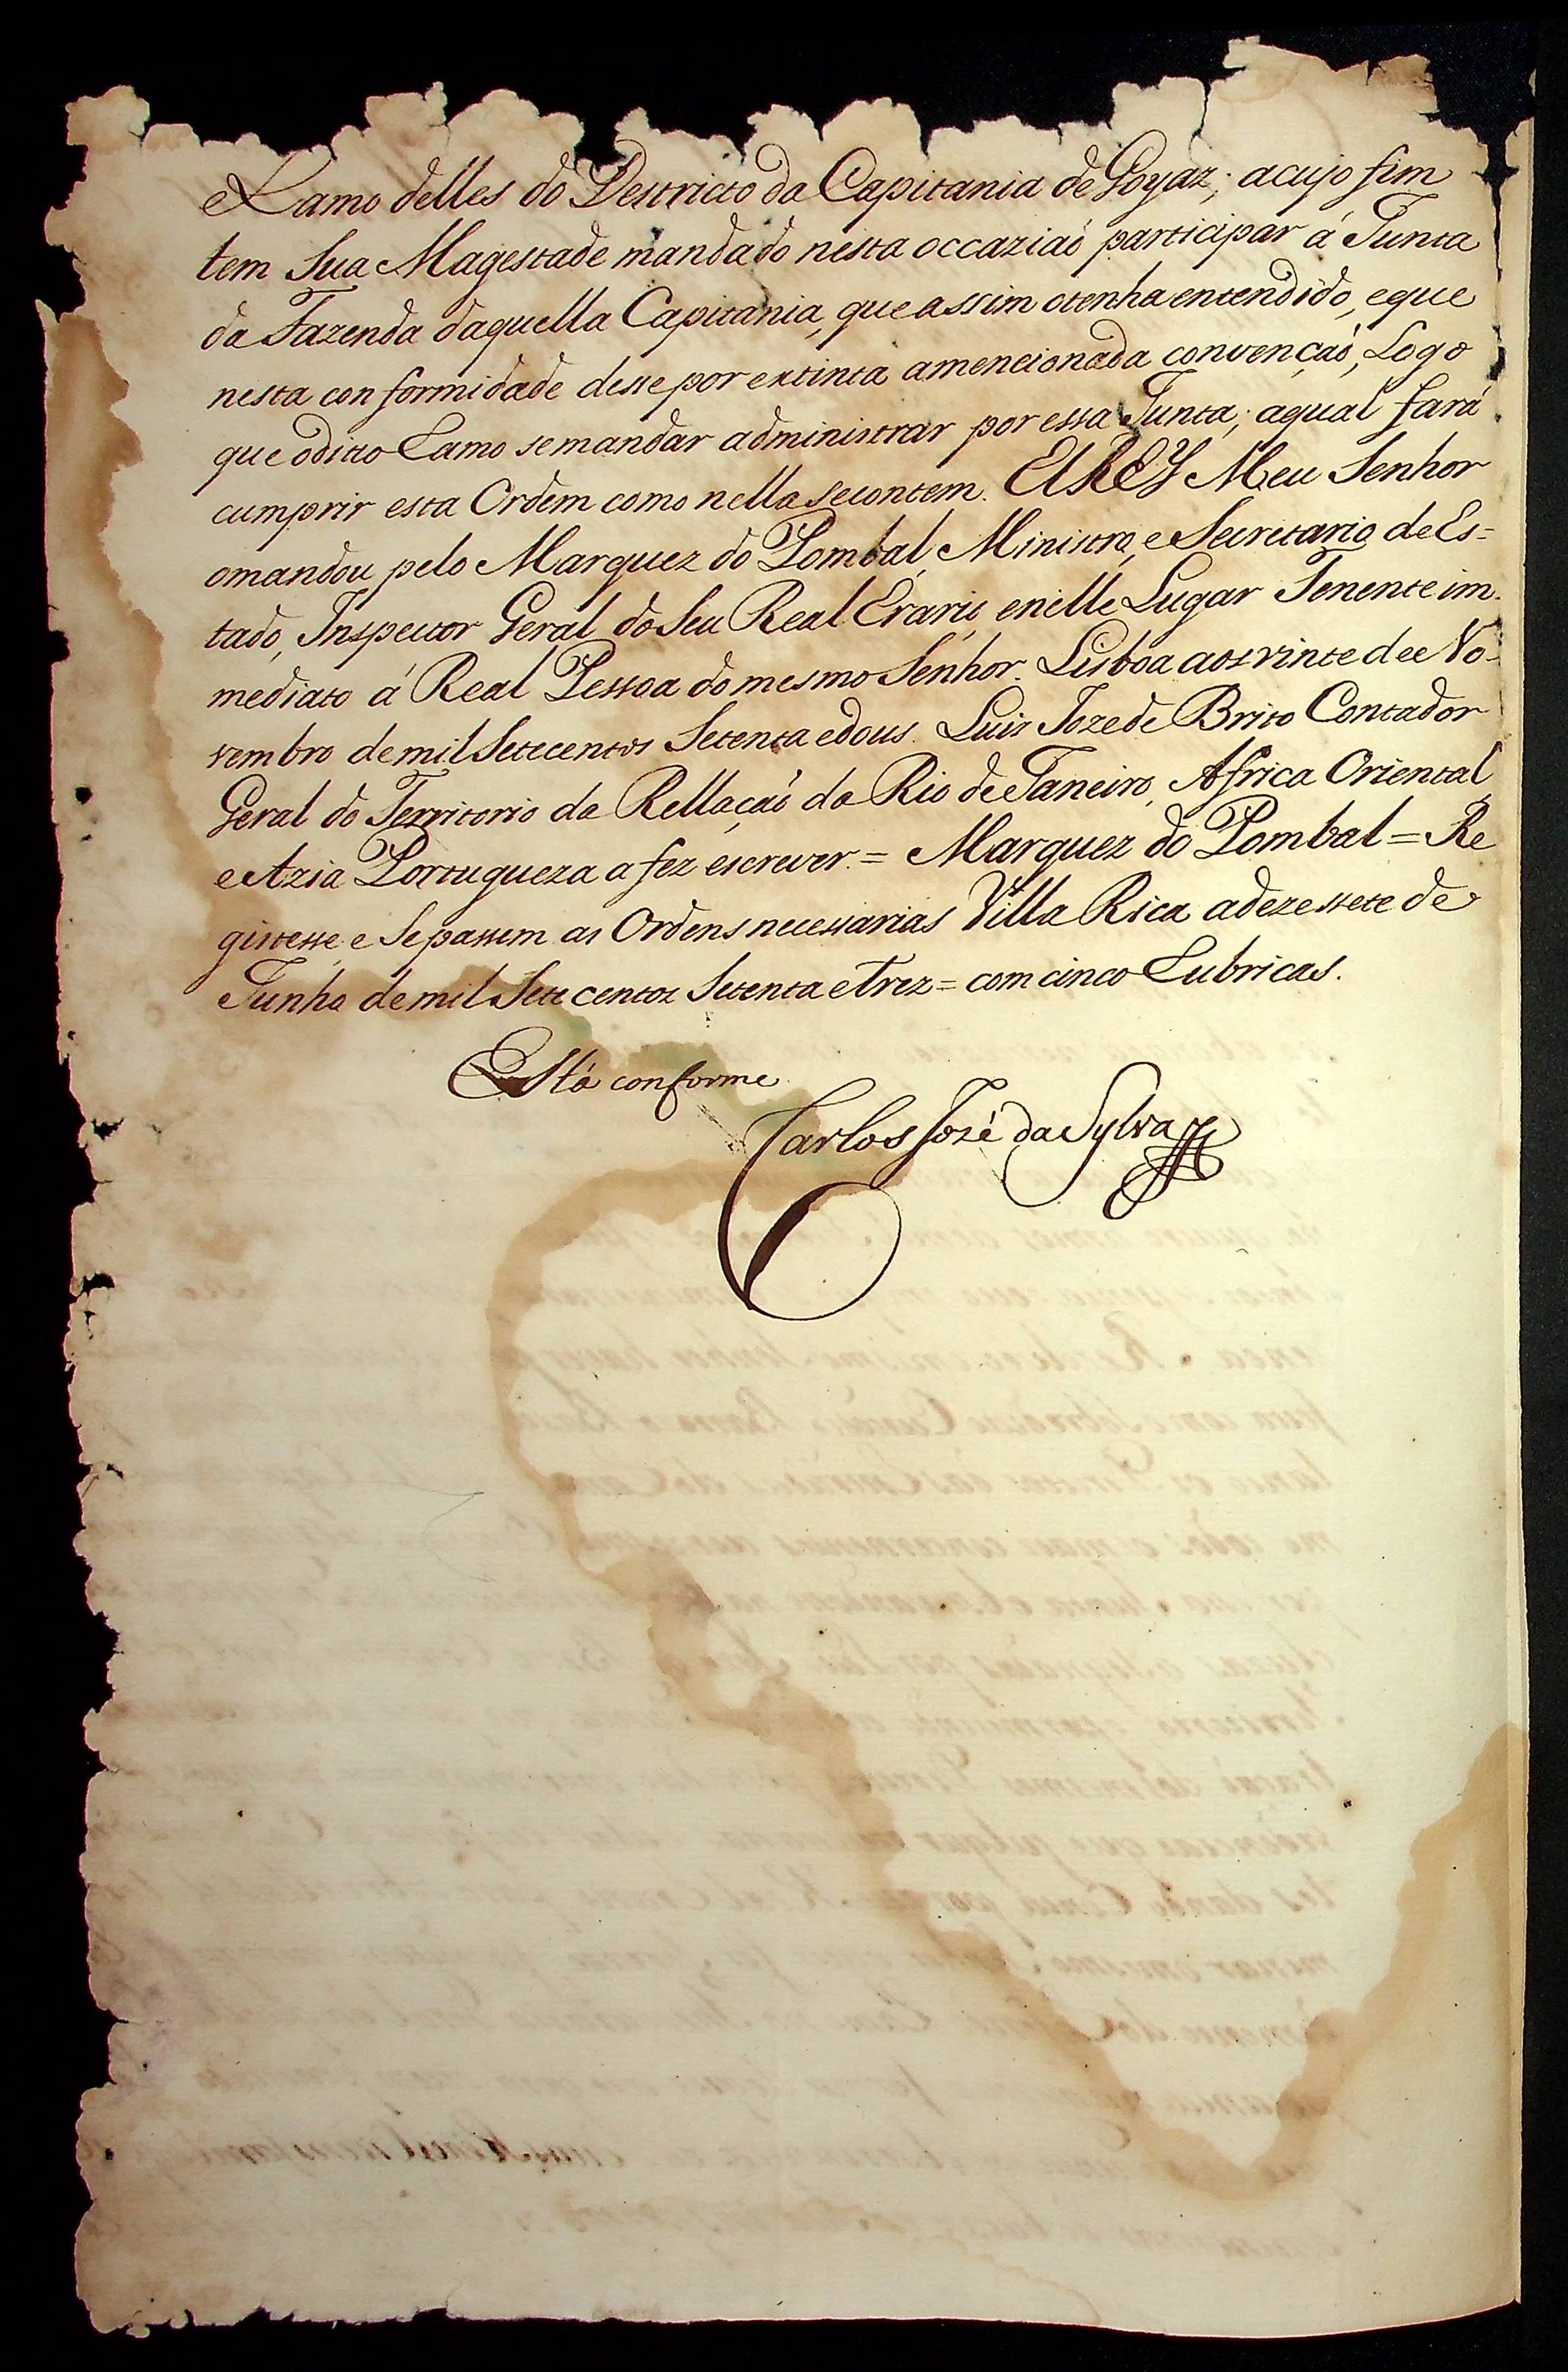 e Ramo delles do Destricto da Capitania de Goyaz; acujo fim
tem Sua Magestade mandado nesta occaziaõ participar á Junta
da Fazenda daquella Capitania, que assim otenha entendido, eque
nesta conformidade desse por extinta amencionada convençaõ, Logo
que oditto Ramo semandar administrar por essa Junta; aqual fará
cumprir esta Ordem como nella secontem. ElREY Meu Senhor
omandou pelo Marquez do Pombal, Ministro, e Secretario de Es=
tado, Inspector Geral do Seu Real Erario, enelle Lugar Tenente im-
mediato á Real Pessoa domesmo Senhor. Lisboa aos vinte de No-
vembro demil Setecentos Setenta edous. Luis Joze de Brito Contador
Geral do Territorio da Rellaçaõ do Rio de Janeiro, Africa Oriental,
e Azia Portugueza a fez escrever = Marquez do Pombal = Re
gistesse e Sepassem as Ordens necessarias Villa Rica adezessete de
Junho demil Sete centos Setenta e trez = com cinco Rubricas.
Está conforme
Carlos José da Sylva